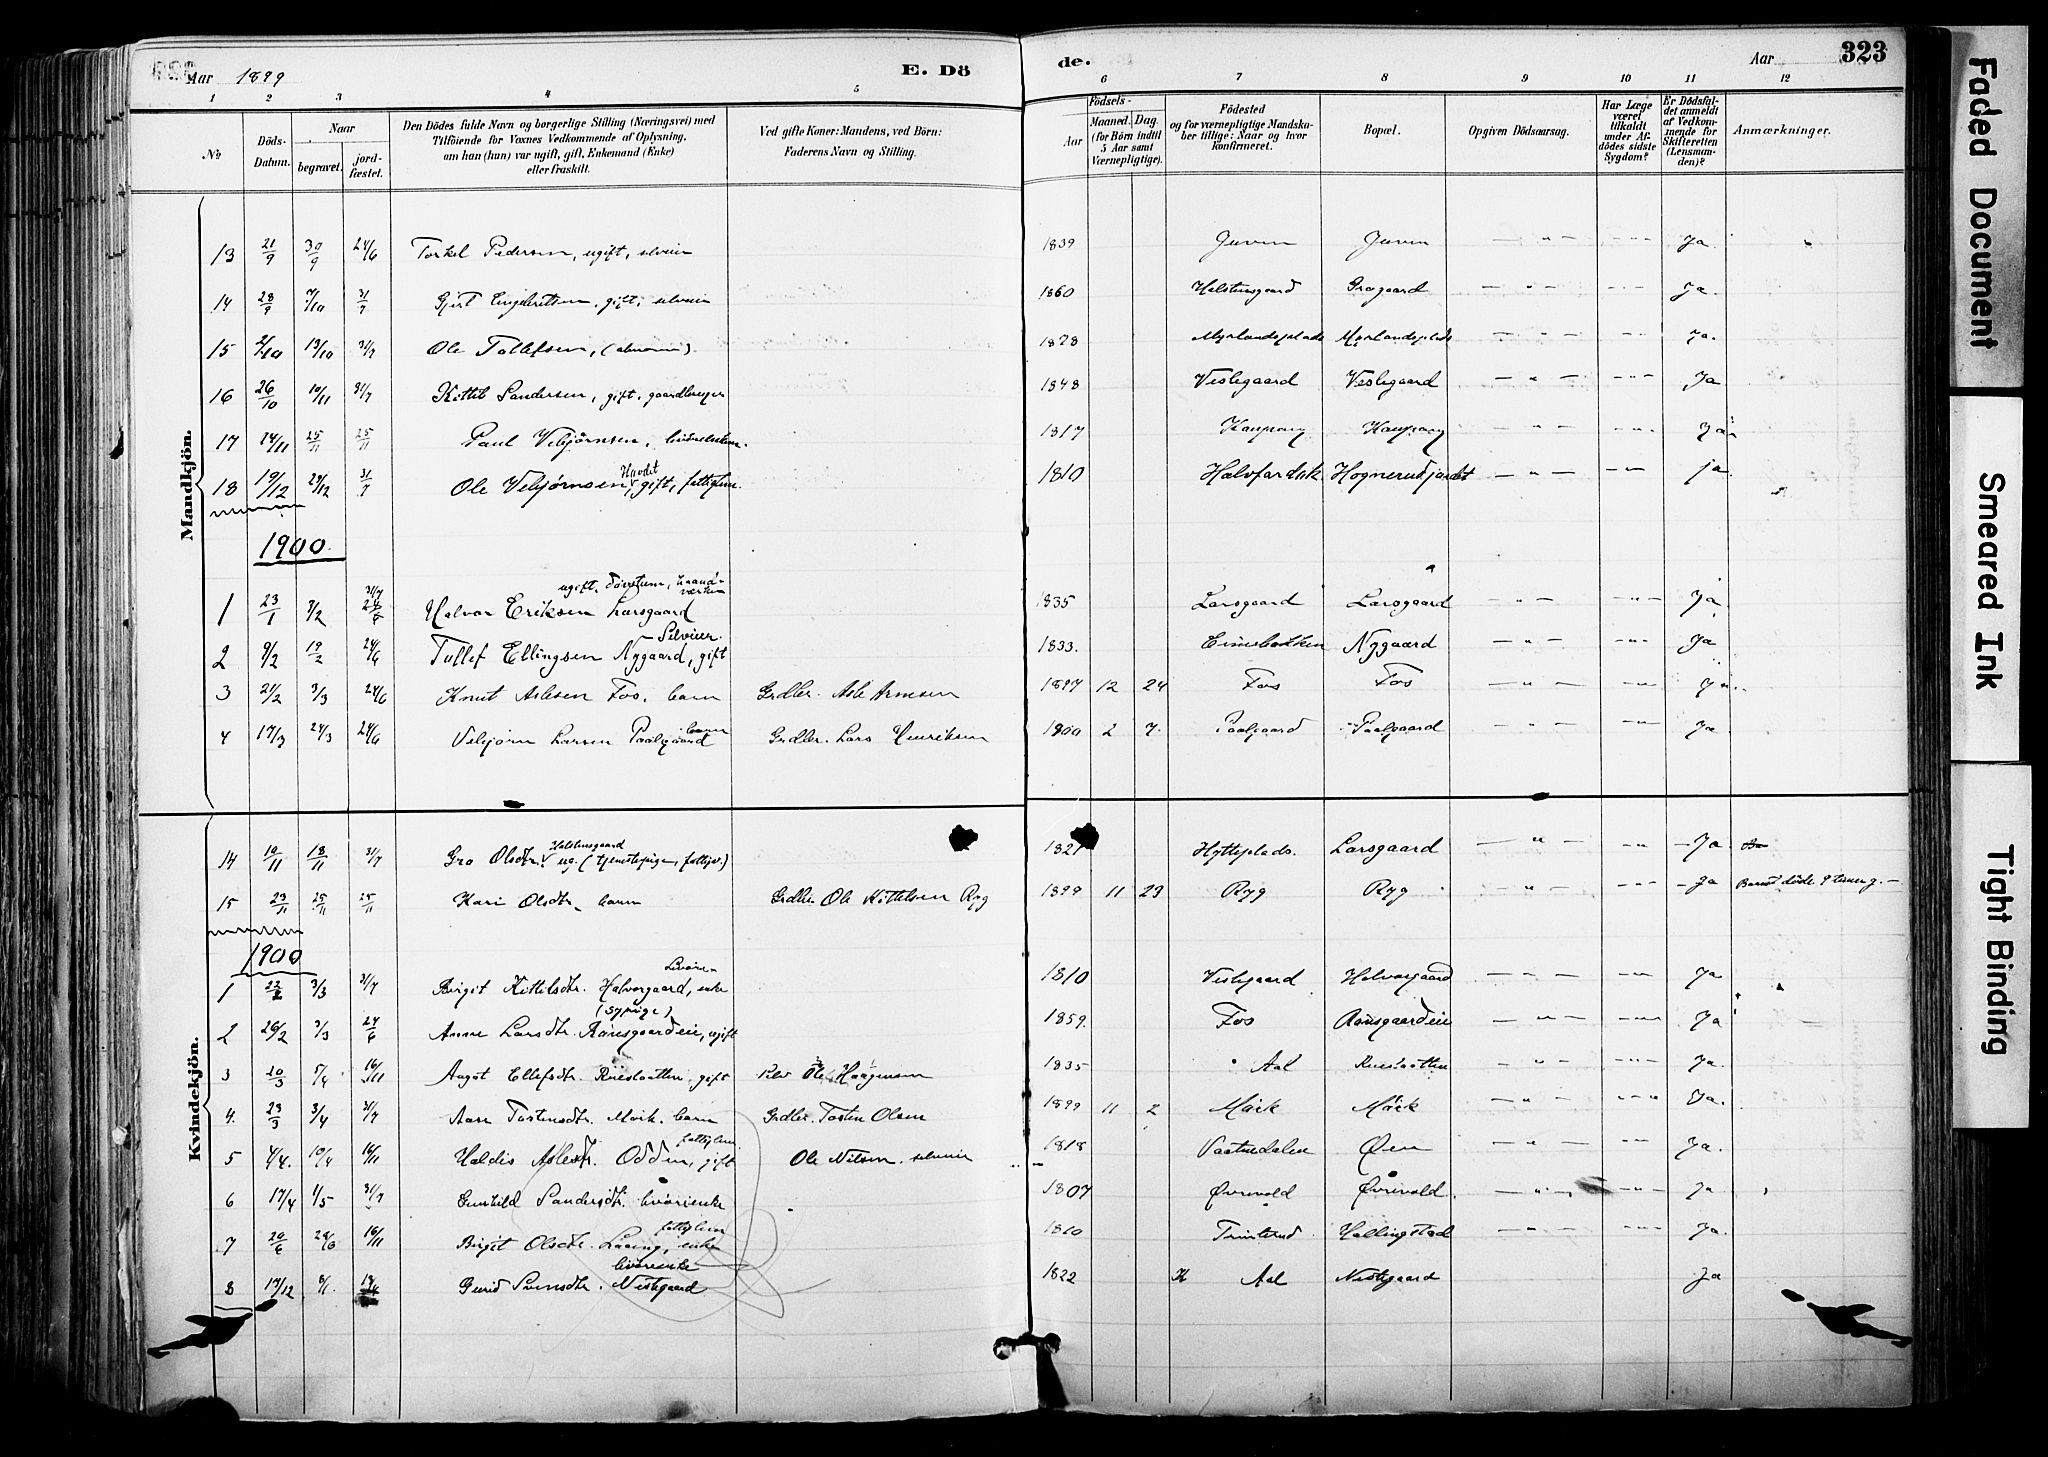 Aar 1899 E. Dö de. Aar 323
1 2 3 4 5 6 7 8 9 10 11 12
No Döds-Datum. Naar begravet. jord-fæstet. Den Dödes fulde Navn og borgerlige Stilling (Næringsvei) med Tilföiende for Voxnes Vedkommende af Oplysning, om han (hun) var ugift, gift, Enkemand (Enke) eller fraskilt. Ved gifte Koner: Mandens, ved Börn: Faderens Navn og Stilling. Födsels- Aar Maaned. Dag. (for Börn indtil 5 Aar samt Værnepligtige). Födested og for værnepligtige Mandskaber tillige: Naar og hvor konfirmeret. Bopæl. Opgiven Dödsaarsag. Har Læge været tilkaldt under Afdödes sidste Sygdom? Er Dödsfaldet anmeldt af Vedkommende for Skifteretten (Lensmanden)? Anmærkninger.
Mandkjön.
13 21/9 30/9 24/6 Torkel Pedersen, ugift, selveier 1839 Juven Juven — " — — " — Ja.
14 28/9 7/10 31/7 Gjert Engebretsen, gift, selveier 1860 Halstensgaard Grøgaard — " — Ja.
15 2/10 13/10 31/7 Ole Tollefsen, 1828 Myrlandsplads Myrlandsplads — " — — " — Ja.
16 26/10 10/11 31/7 Kittil Sandersen, gift, gaardbruger 1848 Veslegaard Veslegaard — " — — " — Ja
17 14/11 25/11 25/11 Paul Vebjørnsen, 1817 Kaupang Kaupang — " — — " — Ja
18 19/12 29/12 31/7 Ole Vebjørnsen, Havdet gift, fattiglem. 1810 Hognerudjordet — " — — " — ja.
1900.
1 23/1 3/2 31/7 24/6 Halvor Eriksen Larsgaard ugift, døvstum, haandværker 1835 Larsgaard Larsgaard — " — — " — Ja
2 9/2 19/2 24/6 Tollef Ellingsen Nygaard, gift Selveier. 1833. Nygaard — " — — " — Ja
3 21/2 3/3 24/6 Knut Aslesen Fos. barn Grdbr. Asle Arnesen 1897 12 24 Fos Fos — " — — " — Ja.
4 17/3 24/3 24/6 Vebjørn Larsen Paalgaard barn Grdbr. Lars Henriksen 1900 2 7. Paalgaard Paalgaard — " — — " — Ja
Kvindekjön.
14 10/11 18/11 31/7 Gro Olsdtr. Halstensgaard ug. (tjenestepige, fattiger.) 1821 Hytteplads. Larsgaard — " — — " — Ja
15 23/11 25/11 25/11 Kari Olsdtr. barn Grdbr. Ole Kittelsen Ryg 1899 11 23 Ryg Ryg — " — — " — Ja Barnet døde 9 timer g.—
1900
1 22/2 3/3 31/7 Birgit Kittilsdtr. Halvorgaard, enke 1810 Veslegaard Halvorgaard — " — — " — Ja
2 26/2 3/3 24/6 Anne Larsdtr. Rønsgaardeie, ugift (sypige) 1859. Fos Rønsgaardeie — " — — " — Ja
3 20/3 5/4 16/11 Aagot Ellefsdtr. Ruesloatten, gift Ole Haagensen 1835 Aal Ruesloatten — " — — " — Ja.
4. 23/3 3/4 31/7 Aase Torstensdtr. Mørk. barn Grdbr. Tosten Olsen 1899 11 2 Mørk Mørk — " — — " — Ja.
5 4/4. 10/4 16/11 Haldis Aslesdtr. Odden, gift fattiglem Ole Nilsen. selveier 1818 Vaatnedalen Øen — " — — " — Ja.
6 17/4 1/5 31/7 Gunhild Sandersdtr. livørienke 1807 Øvrevold Øvrevold. — " — — " — Ja
7 20/6 28/6 16/11 Birgit Olsdtr. enke fattiglem 1810 Trinterud Hallingstad — " — — " — Ja.
8 17/12 8/1. Gurid Svensdtr. Nestegaard livørienke 1822 Aal Nestegaard Ja
Faded Document
Smeared Ink
Tight Binding